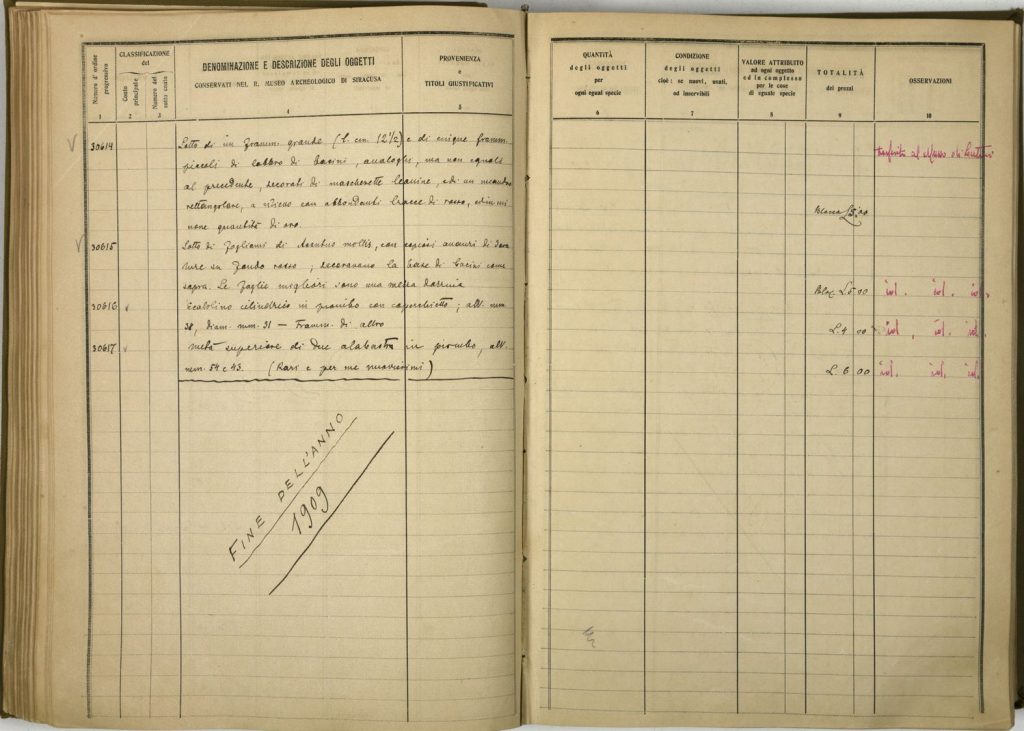 Numero d'ordine progressivo
CLASSIFICAZIONE del
Conto principale
Numero del sotto conto
DENOMINAZIONE E DESCRIZIONE DEGLI OGGETTI
CONSERVATI NEL R. MUSEO ARCHEOLOGICO DI SIRACUSA
PROVENIENZA
e
TITOLI GIUSTIFICATIVI
1 2 3 4 5
30614 Lotto di un framm. grande (l. cm. 12½) e di cinque framm.
piccoli di labbro di bacini, analoghi, ma non eguali
al precedente, decorati di mascherette leonine, e di un meandro
rettangolare, a rilievo con abbondanti tracce di rosso, ed in mi
nore quantità di oro.
30615 Lotto di fogliami di Acantus mollis, con copiosi avanzi di dora
ture su fondo rosso; decoravano la base di bacini come
sopra. Le foglie migliori sono una mezza dozzina
30616 Scatolino cilindrico in piombo con coperchietto; alt. mm
38, diam. mm. 31 — Framm. di altro
30617 Metà superiore di due alabastra in piombo, alt.
mm. 54 e 43. (Rari e per me nuovissimi)
FINE DELL'ANNO
1909
QUANTITÀ
degli oggetti
per
ogni egual specie
CONDIZIONE
degli oggetti
cioè: se nuovi, usati,
od inservibili
VALORE ATTRIBUITO
ad ogni oggetto
ed in complesso
per le cose
di eguale specie
TOTALITÀ
dei prezzi
OSSERVAZIONI
6 7 8 9 10
trasferito al Museo di Lentini
L. 5.00
L. 5.00 id. id. id.
L. 4 00 id. id. id.
L. 6 00 id. id. id.